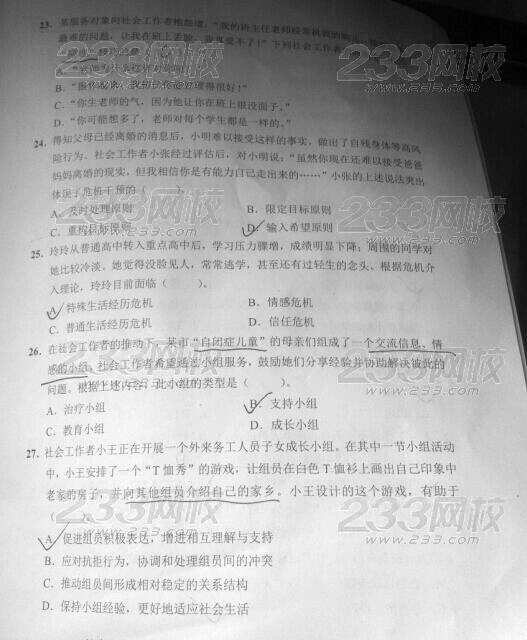 23. 某服务对象向社会工作者抱怨道，“我的班主任老师经常
最难的问题，让我在班上丢脸，我真受不了！”下列社会工作者
B.
C. “你生老师的气，因为他让你在班上很没面子。”
D. “你可能想多了，老师对每个学生都是一样的。”
24. 得知父母已经离婚的消息后，小明难以接受这样的事实，做出了自残身体等高风
险行为。社会工作者小张经过评估后，对小明说：“虽然你现在还难以接受爸爸
妈妈离婚的现实，但我相信你是有能力自己走出来的……”小张的上述说法突出
体现了危机干预的（　　）。
A. 及时处理原则　　B. 限定目标原则
C. 重构目标原则　　D. 输入希望原则
25. 玲玲从普通高中转入重点高中后，学习压力骤增，成绩明显下降；周围的同学对
她比较冷淡。她觉得没脸见人，常常逃学，甚至还有过轻生的念头。根据危机介
入理论，玲玲目前面临（　　）。
A. 特殊生活经历危机　　B. 情感危机
C. 普通生活经历危机　　D. 信任危机
26. 在社会工作者的推动下，某市“自闭症儿童”的母亲们组成了一个交流信息、情
感的小组。社会工作者希望通过小组服务，鼓励她们分享经验并协助解决彼此的
问题。根据上述内容，此小组的类型是（　　）。
A. 治疗小组　　B. 支持小组
C. 教育小组　　D. 成长小组
27. 社会工作者小王正在开展一个外来务工人员子女成长小组。在其中一节小组活动
中，小王安排了一个“T恤秀”的游戏，让组员在白色T恤衫上画出自己印象中
老家的房子，并向其他组员介绍自己的家乡。小王设计的这个游戏，有助于
（　　）。
A. 促进组员积极表达，增进相互理解与支持
B. 应对抗拒行为，协调和处理组员间的冲突
C. 推动组员间形成相对稳定的关系结构
D. 保持小组经验，更好地适应社会生活
233网校
www.233.com